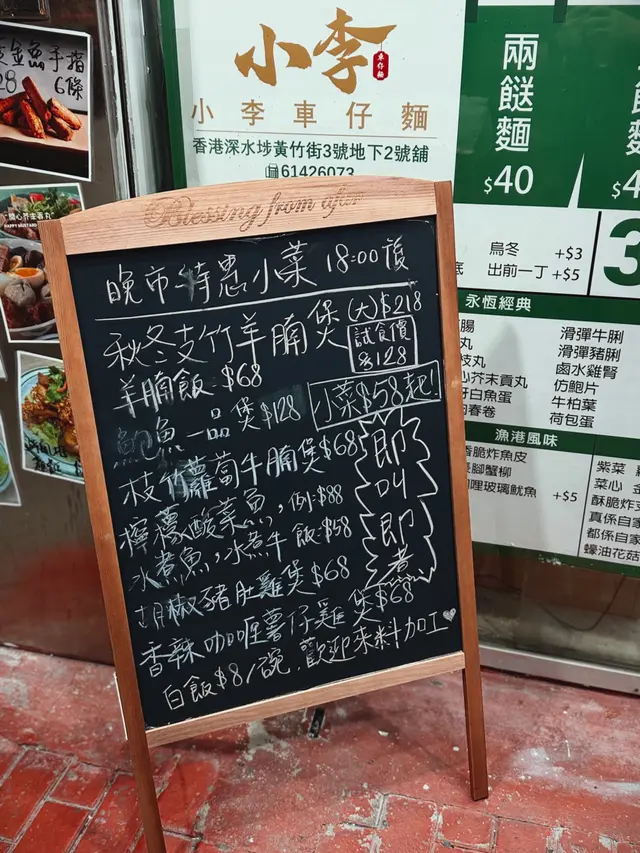 金魚手指
6條
開心芥末春丸
HAPPY MUSTARD
小李
車仔麵
小李車仔麵
香港深水埗黃竹街3號地下2號舖
61426073
兩餸麵
$40
烏冬 +$3
出前一丁 +$5
永恆經典
滑彈牛脷
滑彈豬脷
鹵水雞腎
仿鮑片
牛柏葉
荷包蛋
漁港風味
香脆炸魚皮
長腳蟹柳
咖喱玻璃魷魚 +$5
紫菜
菜心
酥脆炸
真係自家
都係自家
蠔油花菇
Blessing from afar
晚市特惠小菜 18:00後
秋冬支竹羊腩煲 (大)$218
試食價
$128
羊腩飯 $68
小菜$58起!
鮑魚一品煲 $128
枝竹蘿蔔牛腩煲 $68
檸檬酸菜魚, 例:$88
水煮魚, 水煮牛 飯:$58
胡椒豬肚雞煲 $68
香辣咖喱薯仔雞煲 $68
白飯$8/碗, 歡迎來料加工
即叫即煮